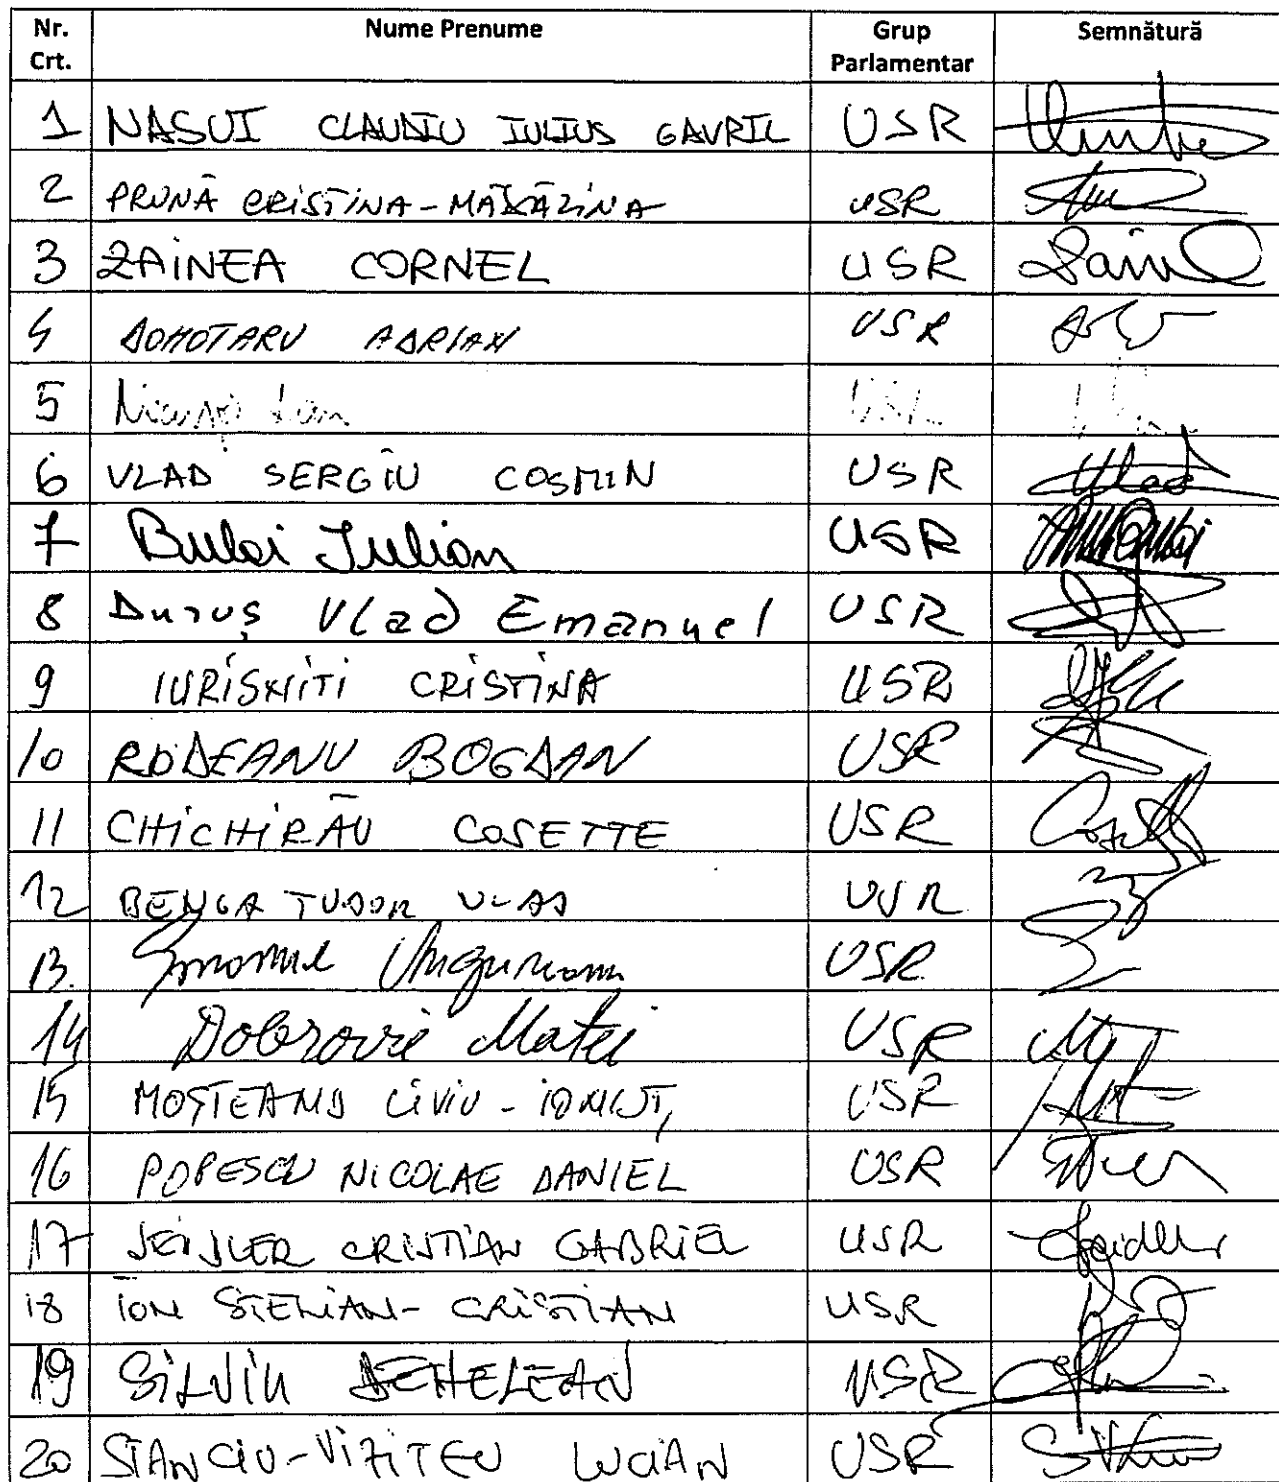 Nr. Crt. Nume Prenume Grup Parlamentar Semnătură
1 NASUI CLAUDIU IULIUS GAVRIL USR
2 PRUNĂ CRISTINA-MĂDĂLINA USR
3 ZAINEA CORNEL USR
4 DOHOTARU ADRIAN USR
5 USR
6 VLAD SERGIU COSMIN USR Vlad
7 Bulai Iulian USR
8 Duruș Vlad Emanuel USR
9 IURIȘNIȚI CRISTINA USR
10 RODEANU BOGDAN USR
11 CHICHIRĂU COSETTE USR
12 BENGA TUDOR VLAD USR
13. Emanuel Ungureanu USR
14 Dobrovie Matei USR
15 MOȘTEANU LIVIU-IONUȚ, USR
16 POPESCU NICOLAE DANIEL USR
17 SEIDLER CRISTIAN GABRIEL USR Seidler
18 ION STELIAN-CRISTIAN USR
19 SILVIU DEHELEAN USR
20 STANCIU-VIZITEU LUCIAN USR